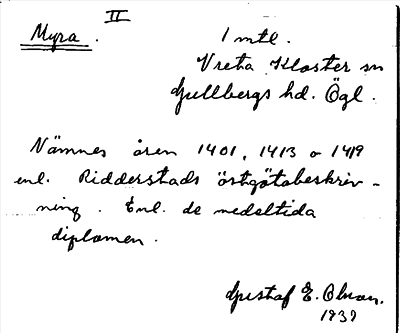 II
Myra.
1 mtl.
Vreta Kloster sn
Gullbergs hd. Ögl.
Nämnes åren 1401, 1413 o 1419
enl. Ridderstads östgötabeskriv-
ning. Enl. de medeltida
diplomen.
Gustaf E. Olsson.
1939